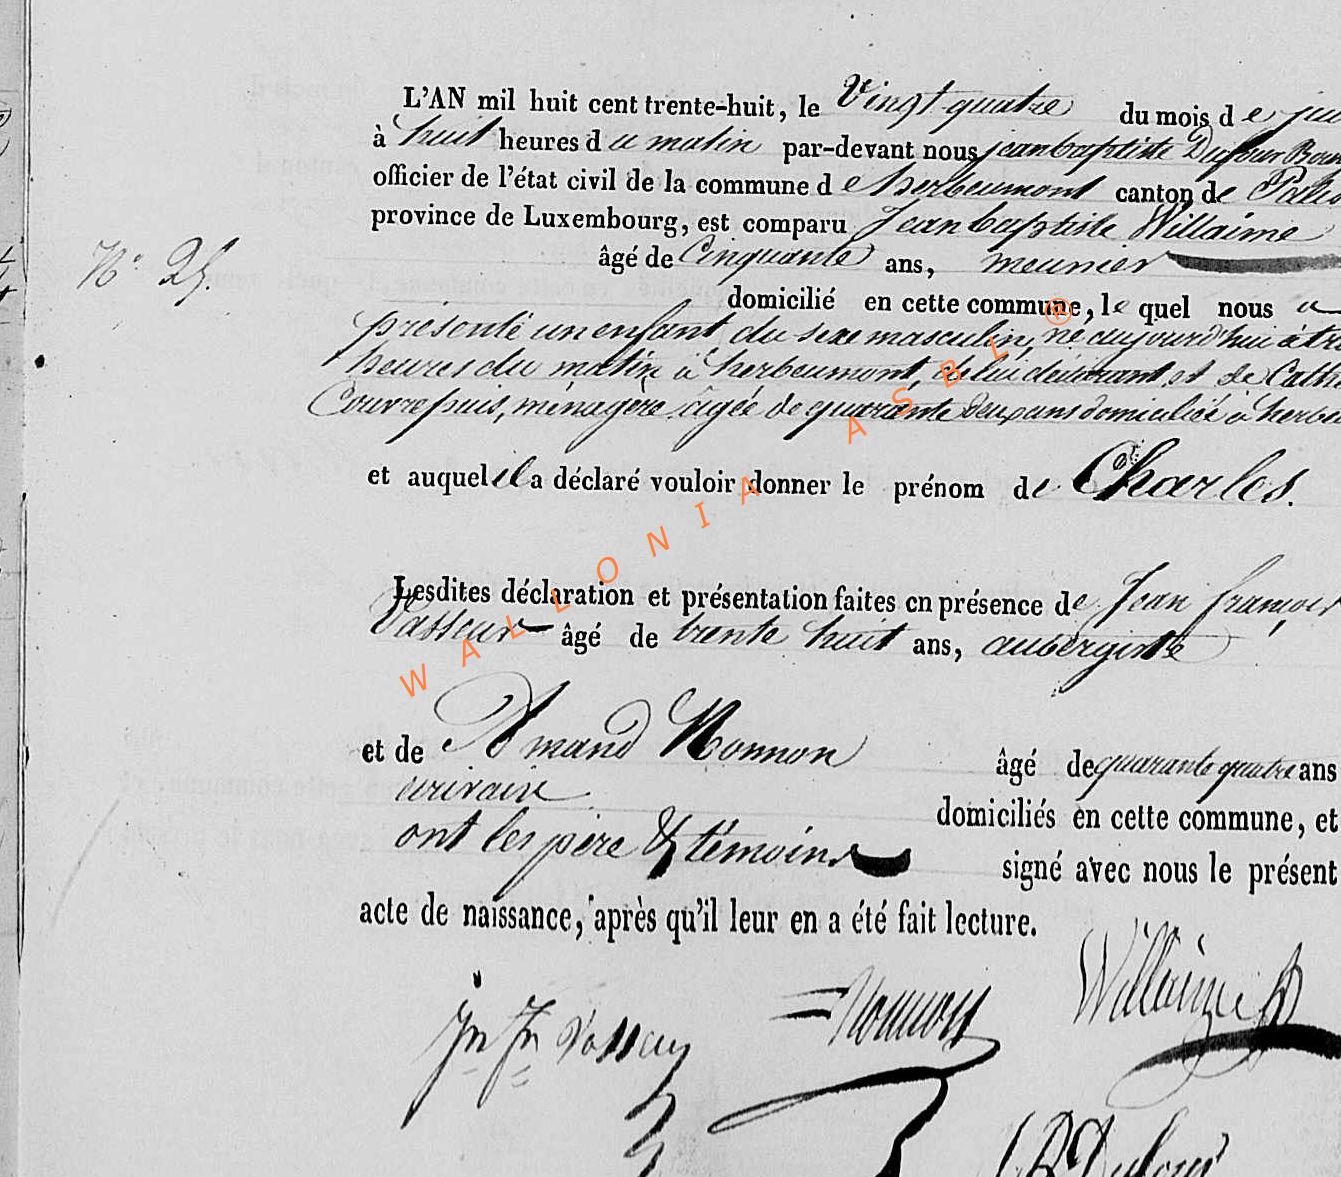 L'AN mil huit cent trente-huit, le Vingt quatre du mois de
à huit heures du matin par-devant nous jeanbaptiste Dufour
officier de l'état civil de la commune de herbeumont canton de
province de Luxembourg, est comparu Jean baptiste Willaime
N° 25. âgé de Cinquante ans, meunier
domicilié en cette commune, le quel nous a
présenté un enfant du sexe masculin, né aujourd'hui à
heures du matin à herbeumont, de lui déclarant et de
Courrepuis, ménagère âgée de quarante deux ans domiciliée à
et auquel il a déclaré vouloir donner le prénom de Charles.
Lesdites déclaration et présentation faites en présence de Jean françois
Vasseur âgé de trente huit ans, aubergiste
et de Amand Monnon âgé de quarante quatre ans
écrivain domiciliés en cette commune, et
ont les père & témoins signé avec nous le présent
acte de naissance, après qu'il leur en a été fait lecture.
Jn Fr Vasseur Monnon Willaime
JB Dufour
WALLONIA ASBL ®